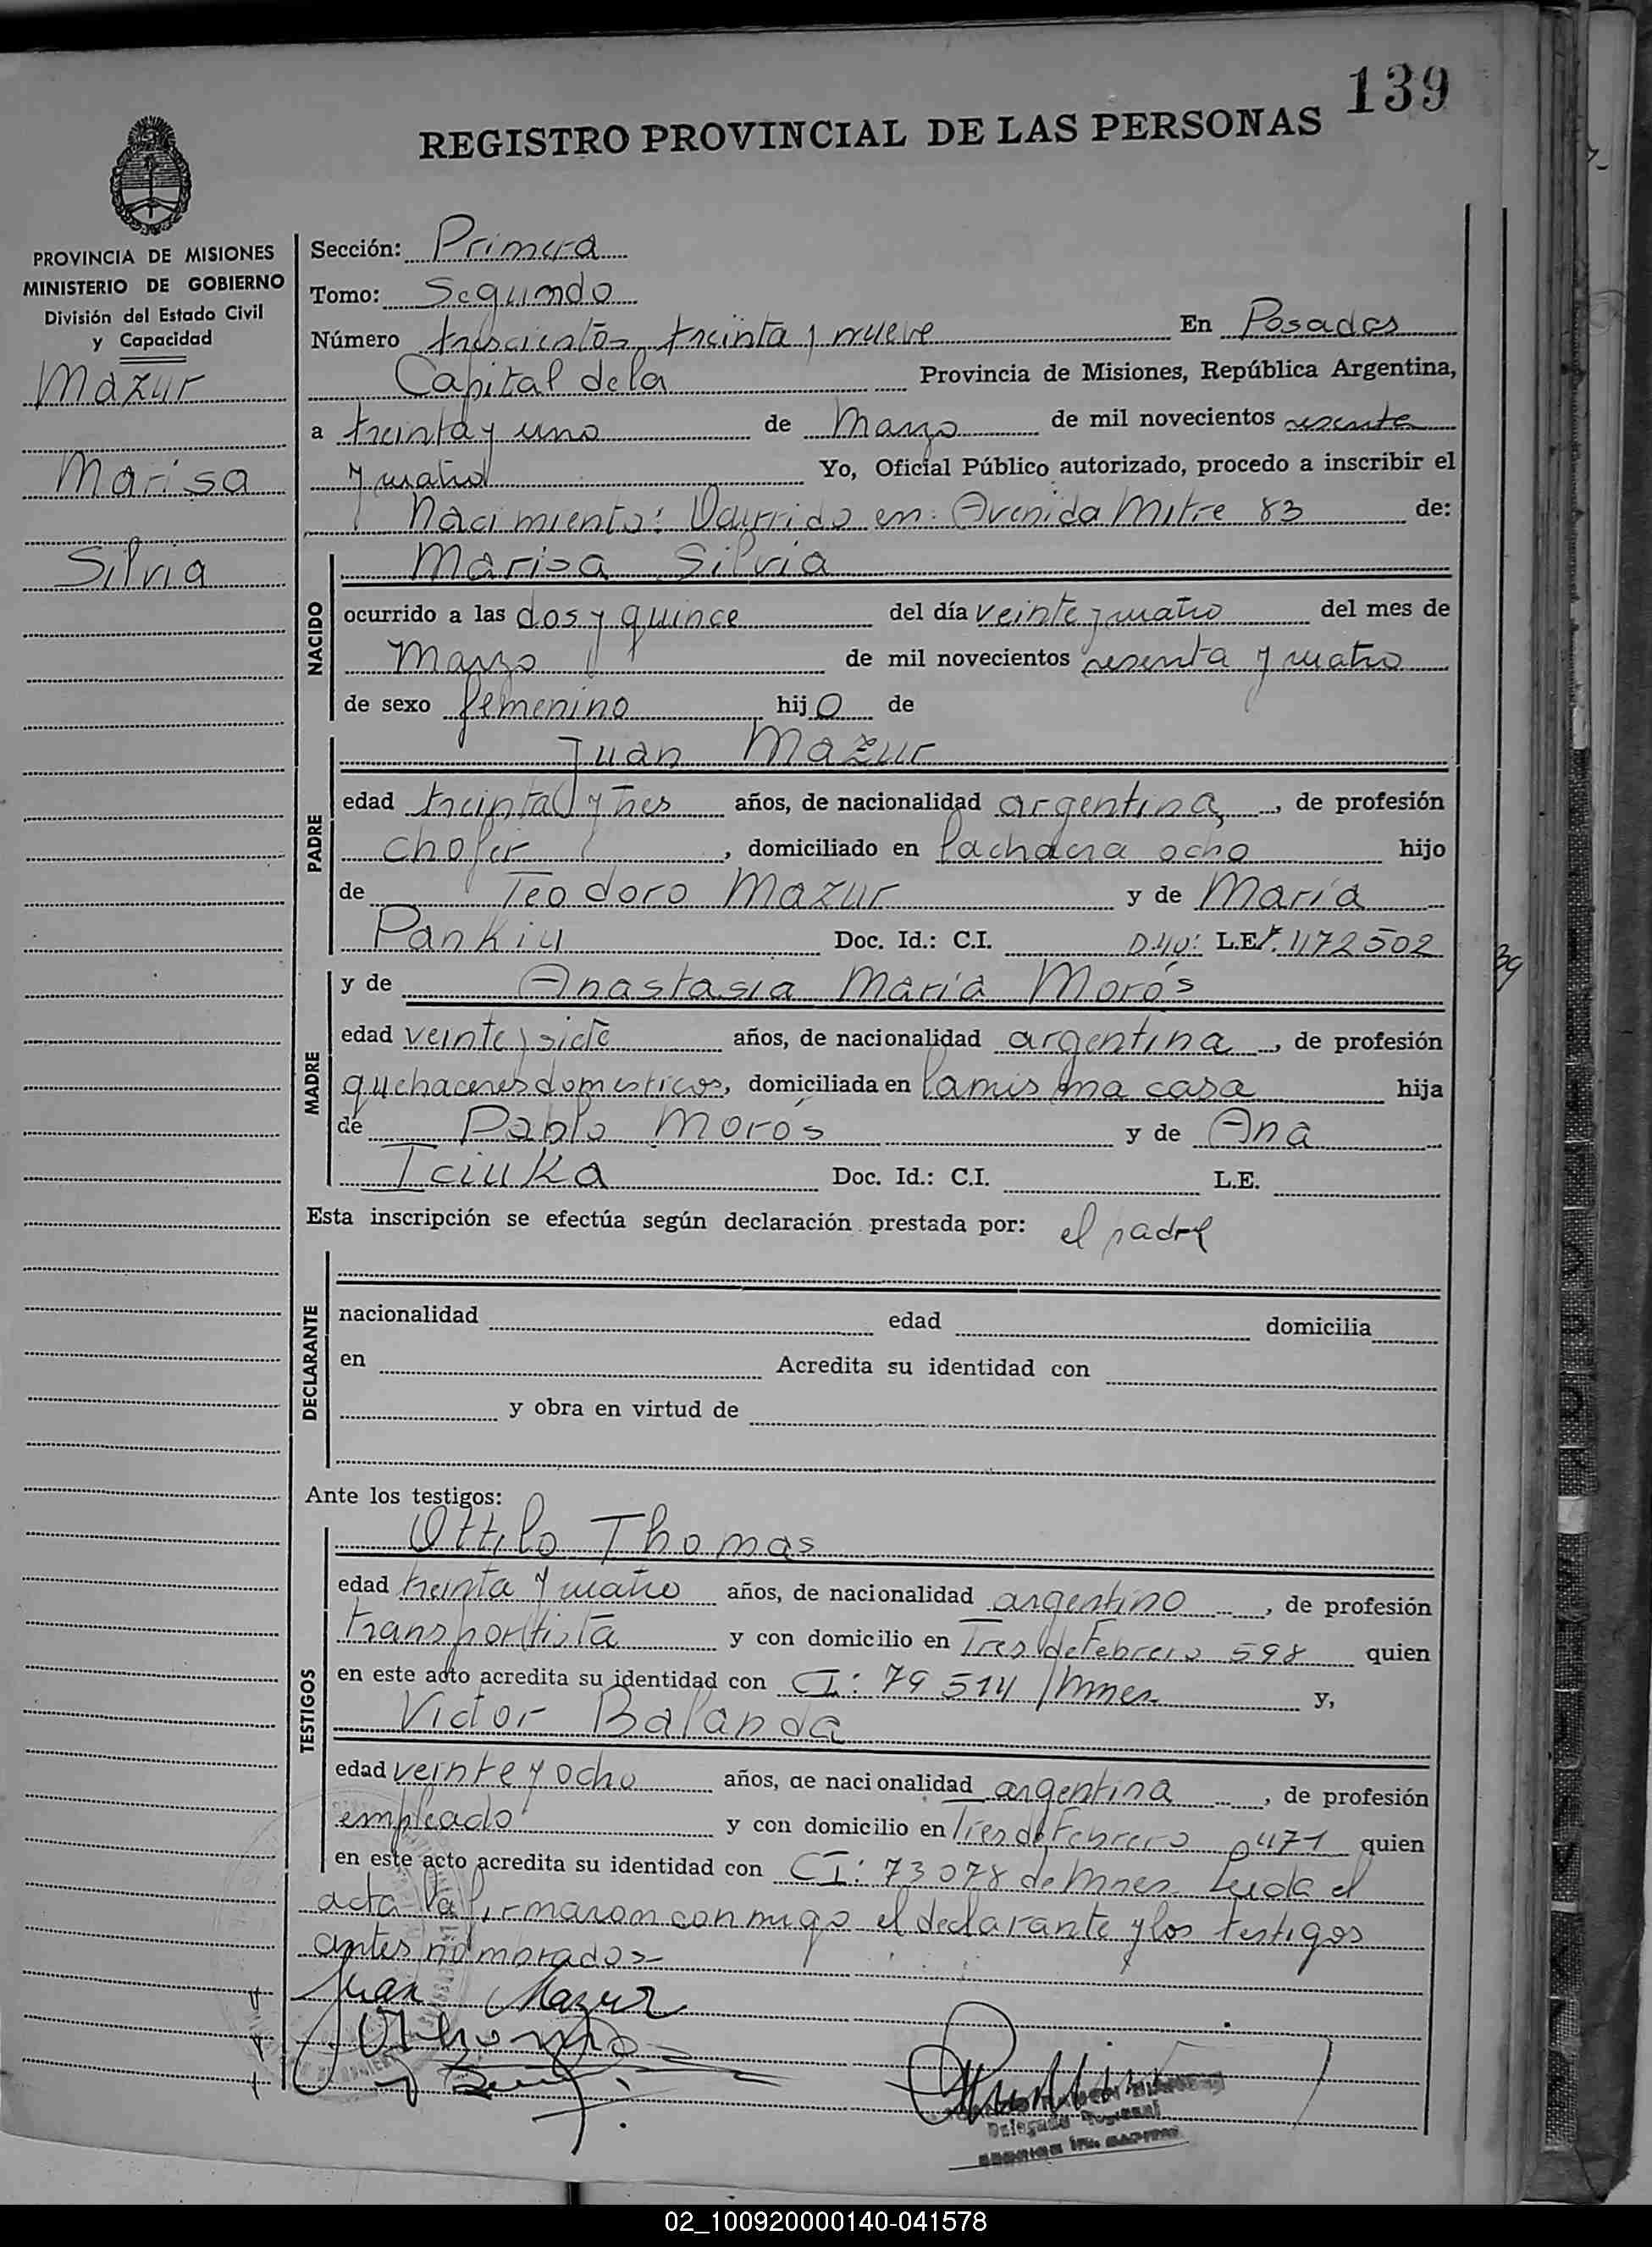 139
REGISTRO PROVINCIAL DE LAS PERSONAS
PROVINCIA DE MISIONES
MINISTERIO DE GOBIERNO
División del Estado Civil
y Capacidad
Mazur
Marisa
Silvia
Sección: Primera
Tomo: Segundo
Número trescientos treinta y nueve En Posadas
Capital de la Provincia de Misiones, República Argentina,
a treinta y uno de Marzo de mil novecientos sesenta
y cuatro Yo, Oficial Público autorizado, procedo a inscribir el
Nacimiento: Ocurrido en: Avenida Mitre 83 de:
NACIDO
Marisa Silvia
ocurrido a las dos y quince del día veinte y cuatro del mes de
Marzo de mil novecientos sesenta y cuatro
de sexo femenino hijo de
PADRE
Juan Mazur
edad treinta y tres años, de nacionalidad argentina, de profesión
chofer, domiciliado en la chacra ocho hijo
de Teodoro Mazur y de María
Pankiu Doc. Id.: C.I. L.E.
MADRE
y de Anastasia María Morós
edad veinte y siete años, de nacionalidad argentina, de profesión
quehaceres domesticos, domiciliada en la misma casa hija
de Pablo Morós y de Ana
Iciuka Doc. Id.: C.I. L.E.
Esta inscripción se efectúa según declaración prestada por: el padre
DECLARANTE
nacionalidad edad domicilia
en Acredita su identidad con
y obra en virtud de
Ante los testigos:
TESTIGOS
Ottilo Thomas
edad treinta y cuatro años, de nacionalidad argentino, de profesión
transportista y con domicilio en Tres de Febrero 598 quien
en este acto acredita su identidad con CI: 79 514 /Mnes y,
Victor Balanda
edad veinte y ocho años, de nacionalidad argentina, de profesión
empleado y con domicilio en Tres de Febrero quien
en este acto acredita su identidad con CI: 73 078 de Mnes Leida el
acta la firmaron conmigo el declarante y los testigos
antes nombrados-
Juan Mazur
Delegado
39
02_100920000140-041578